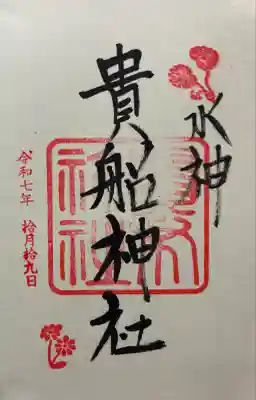 水神
貴船神社
令和七年 拾月拾九日